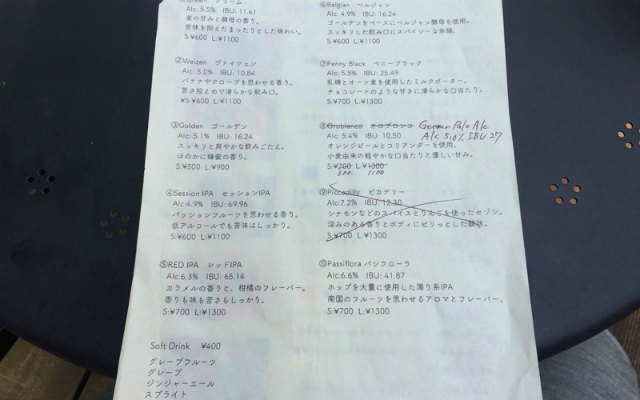 ①Cream クリーム
Alc: 5.5% IBU: 11.61
麦の甘みと酵母の香り。
苦味を抑えたまったりとした味わい。
S:¥600 L:¥1100
②Weizen ヴァイツェン
Alc: 5.0% IBU: 10.84
バナナやクローブを思わせる香り。
苦さ控えめで滑らかな飲み口。
¥S:¥600 L:¥1100
③Golden ゴールデン
Alc: 5.1% IBU: 16.24
スッキリと爽やかな飲みごたえ。
ほのかに蜂蜜の香り。
S:¥500 L:¥900
④Session IPA セッションIPA
Alc:4.9% IBU: 69.96
パッションフルーツを思わせる香り。
低アルコールでも苦味はしっかり。
S:¥600 L:¥1100
⑤RED IPA レッドIPA
Alc:6.3% IBU: 65.14
カラメルの香りと、柑橘のフレーバー。
香りも味も苦さもしっかり。
S:¥700 L:¥1300
Soft Drink ¥400
グレープフルーツ
グレープ
ジンジャーエール
スプライト
⑥Belgian ベルジャン
Alc: 4.9% IBU: 16.24
ゴールデンをベースにベルジャン酵母を使用。
スッキリした飲み口にスパイシーな余韻。
S:¥600 L:¥1100
⑦Penny Black ペニーブラック
Alc: 5.5% IBU: 25.49
乳糖とオーツ麦を使用したミルクポーター。
チョコレートのような甘さに滑らかな口当たり。
S:¥700 L:¥1300
⑧Oroblanco オロブロンコ German Pale Ale
Alc: 5.4% IBU: 10.50 Alc 5.0% IBU 27
オレンジピールとコリアンダーを使用。
小麦由来の軽やかな口当たりと優しい甘み。
S:¥700 L:¥1300
600 1100
⑨Piccadilly ピカデリー
Alc:7.2% IBU: 12.30
シナモンなどのスパイスとりんごを使ったセゾン。
深みのある香りとボディにピリっとした酸味。
S:¥700 L:¥1300
⑩Passiflora パシフローラ
Alc:6.6% IBU: 41.87
ホップを大量に使用した濁り系IPA
南国のフルーツを思わせるアロマとフレーバー。
S:¥700 L:¥1300